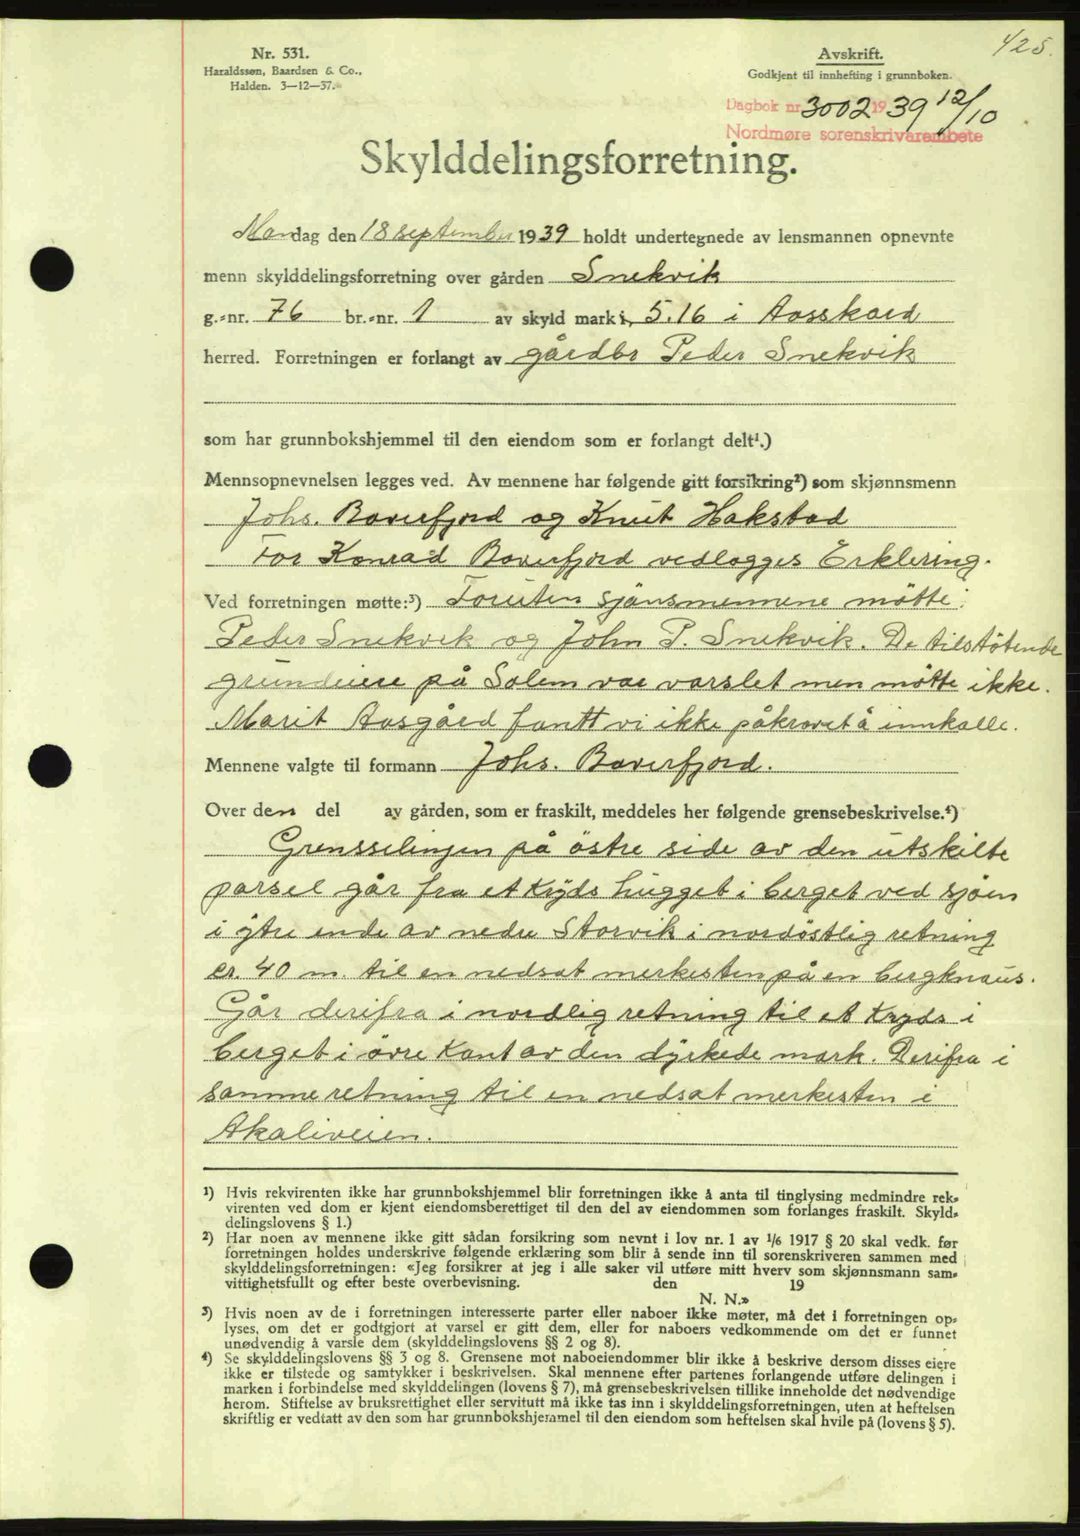 425.
Nr. 531.
Haraldssøn, Baardsen & Co.,
Halden. 3—12—37.
Avskrift.
Godkjent til innhefting i grunnboken.
Dagbok nr. 3002 1939 12/10
Nordmøre sorenskrivarembete
Skylddelingsforretning.
Mandag den 18 september 1939 holdt undertegnede av lensmannen opnevnte
menn skylddelingsforretning over gården Snekvik
g.-nr. 76 br.-nr. 1 av skyld mark 5.16 i Aasskard
herred. Forretningen er forlangt av gårdbr Peder Snekvik
som har grunnbokshjemmel til den eiendom som er forlangt delt¹.)
Mennsopnevnelsen legges ved. Av mennene har følgende gitt forsikring²) som skjønnsmenn
Johs. Bøverfjord og Knut Hakstad
For Konrad Bøverfjord vedlægges Erklering.
Ved forretningen møtte:³) Foruten sjönsmennene mötte:
Peder Snekvik og John P. Snekvik. De tilstötende
grundeiere på Solem var varslet men mötte ikke.
Marit Aasgård fantt vi ikke påkrævet å innkalle.
Mennene valgte til formann Johs. Bøverfjord.
Over den del av gården, som er fraskilt, meddeles her følgende grensebeskrivelse.⁴)
Grensselinjen på östre side av den utskilte
parsel går fra et Kryds hugget i berget ved sjöen
i ytre ende av nedre Storvik i nordöstlig retning
cr. 40 m. til en nedsat merkesten på en bergknaus.
Går derifra i nordlig retning til et Kryds i
berget i övre Kant av den dyrkede mark. Derifra i
samme retning til en nedsat merkesten i
Akaliveien.
¹) Hvis rekvirenten ikke har grunnbokshjemmel blir forretningen ikke å anta til tinglysing medmindre rek-
virenten ved dom er kjent eiendomsberettiget til den del av eiendommen som forlanges fraskilt. Skyld-
delingslovens § 1.)
²) Har noen av mennene ikke gitt sådan forsikring som nevnt i lov nr. 1 av 1/6 1917 § 20 skal vedk. før
forretningen holdes underskrive følgende erklæring som blir å sende inn til sorenskriveren sammen med
skylddelingsforretningen: «Jeg forsikrer at jeg i alle saker vil utføre mitt hverv som skjønnsmann sam-
vittighetsfullt og efter beste overbevisning. den 19
N. N.»
³) Hvis noen av de i forretningen interesserte parter eller naboer ikke møter, må det i forretningen op-
lyses, om det er godtgjort at varsel er gitt dem, eller for naboers vedkommende om det er funnet
unødvendig å varsle dem (skylddelingslovens §§ 2 og 8).
⁴) Se skylddelingslovens §§ 3 og 8. Grensene mot naboeiendommer blir ikke å beskrive dersom disses eiere
ikke er tilstede og samtykker i beskrivelsen. Skal mennene efter partenes forlangende utføre delingen i
marken i forbindelse med skylddelingen (lovens § 7), må grensebeskrivelsen tillike inneholde det nødvendige
herom. Stiftelse av bruksrettighet eller servitutt må ikke tas inn i skylddelingsforretningen, uten at heftelsen
skriftlig er vedtatt av den som har grunnbokshjemmel til den eiendom som heftelsen skal hvile på (lovens § 5).